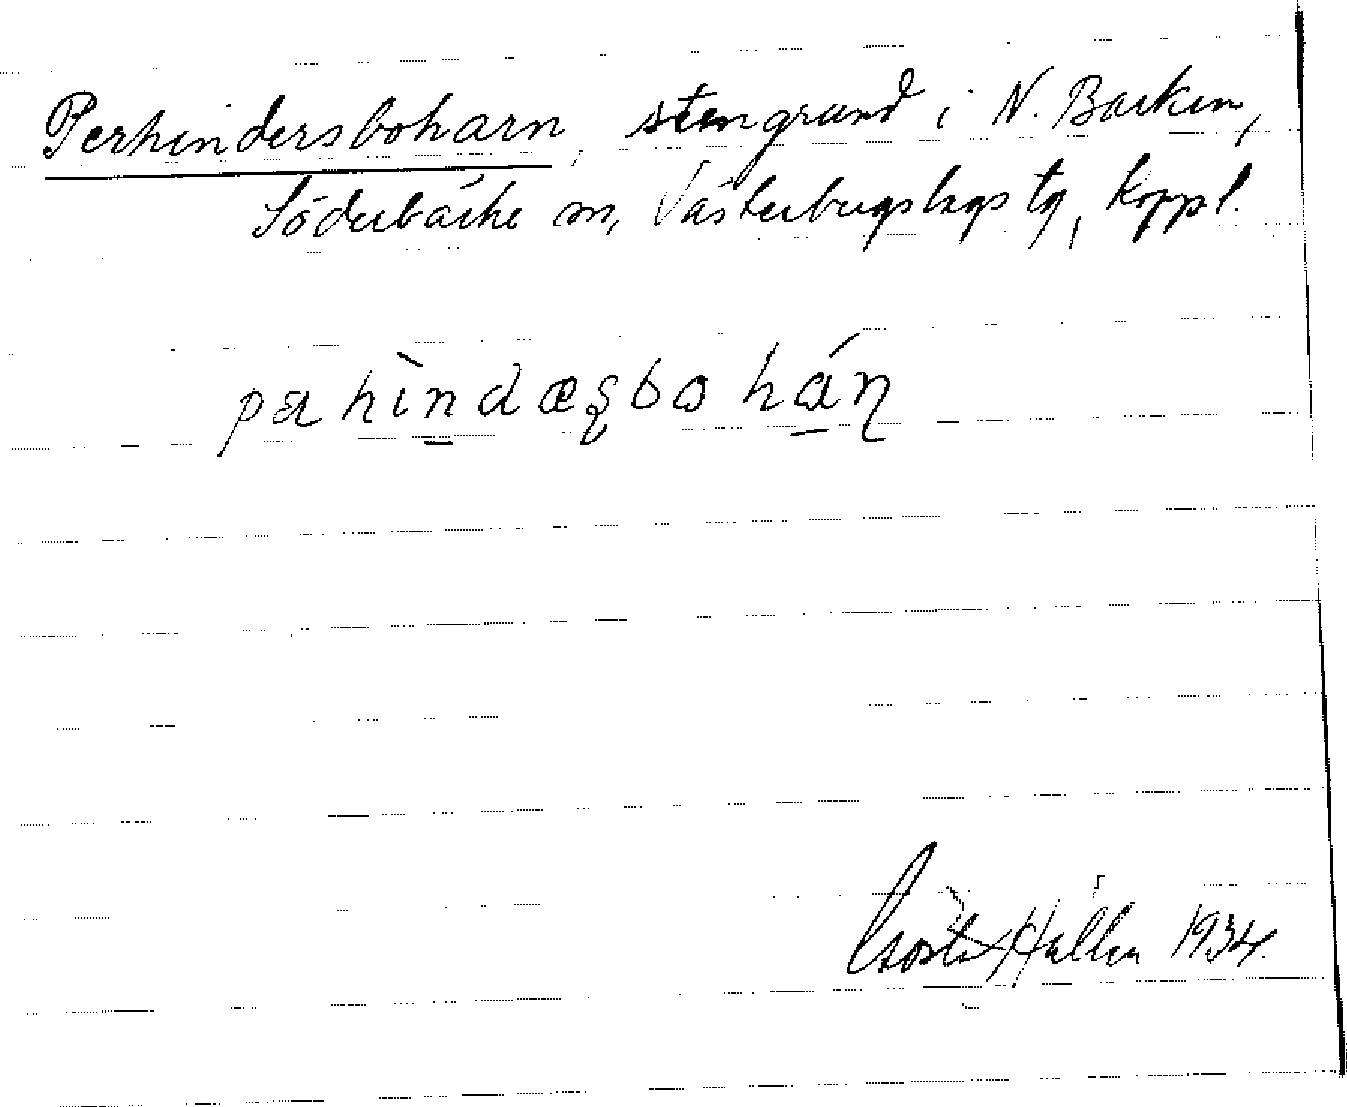 Perhindersboharn, stengrund i N. Barken,
Söderbärke sn, Västerbergslags tg, Koppl.
pæhìndæʂbohán
Gösta Hallén 1934.